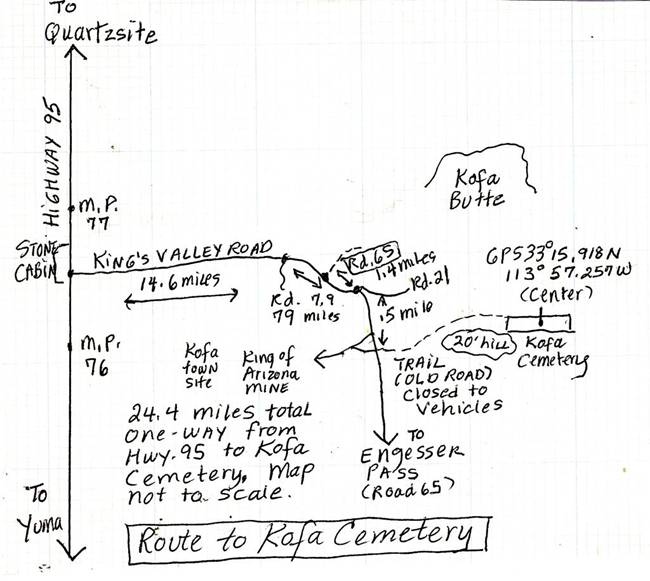 TO
Quartzsite
HIGHWAY 95
M.P.
77
STONE
CABIN
KING'S VALLEY ROAD
14.6 miles
Rd.
79
7.9
miles
Rd. 65
1.4 miles
Rd. 21
.5 mile
Kofa
Butte
GPS 33° 15.918 N
113° 57.257 W
(Center)
20' hill
Kofa
Cemetery
M.P.
76
Kofa
TOWN
SITE
King of
Arizona
MINE
TRAIL
(OLD ROAD)
Closed to
Vehicles
24.4 miles total
one-way from
Hwy. 95 to Kofa
Cemetery. Map
not to scale.
TO
ENGESSER
PASS
(Road 65)
To
Yuma
Route to Kofa Cemetery